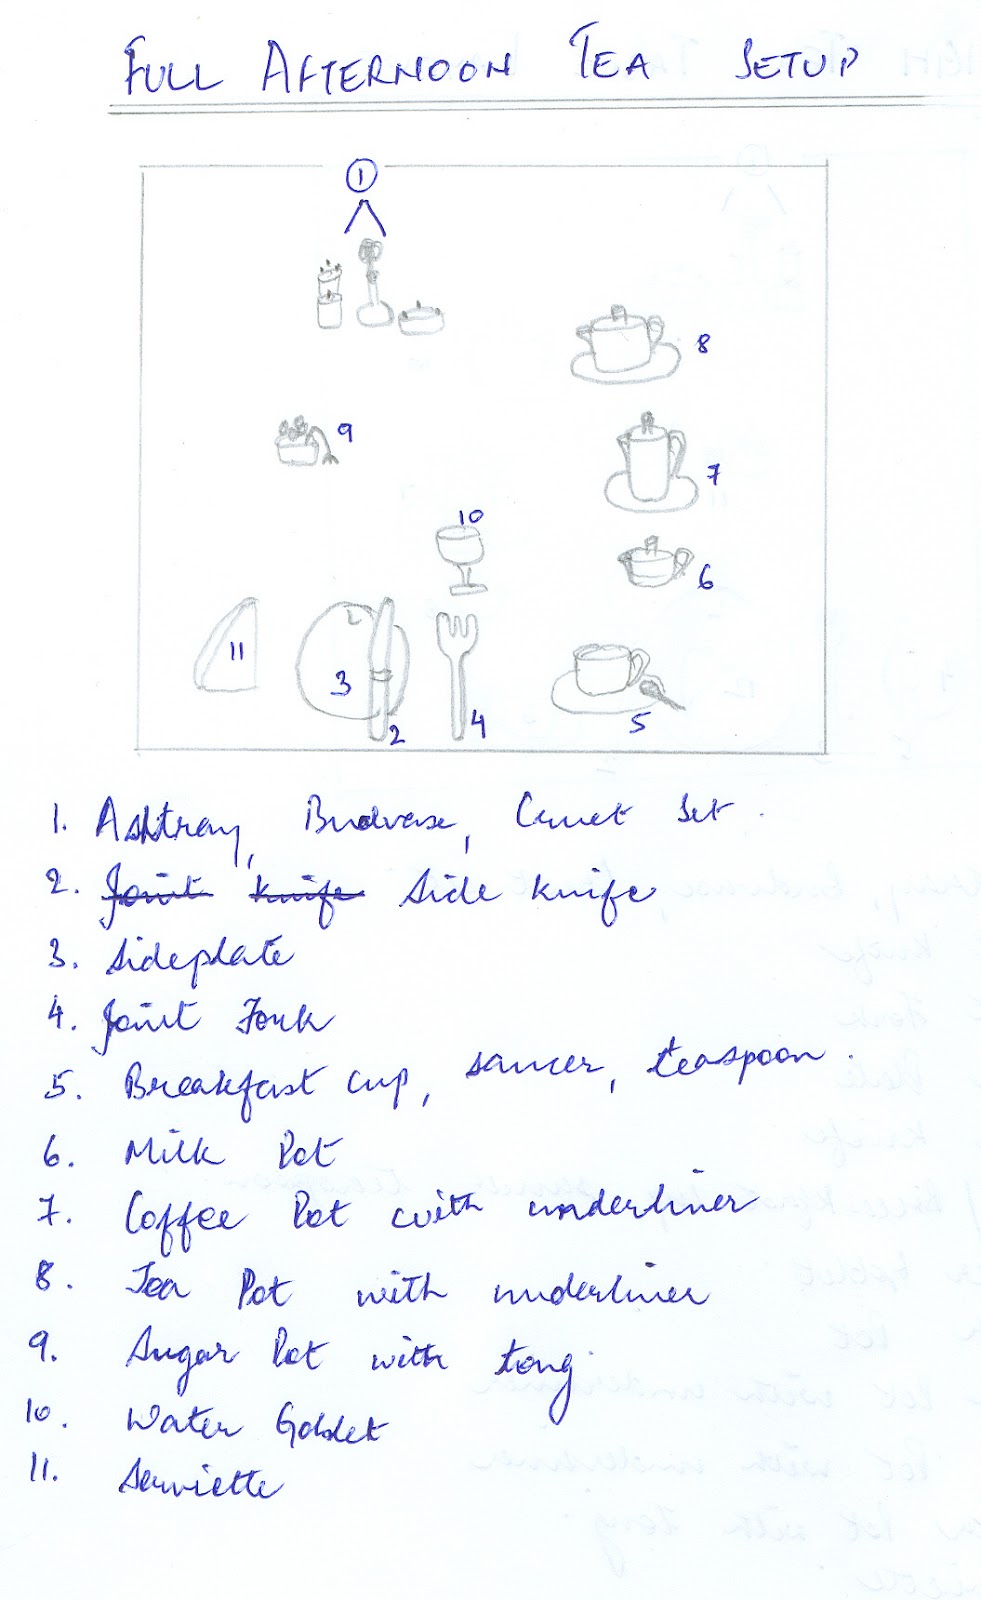 FULL AFTERNOON TEA SETUP
1
8
9
7
10
6
11
3
2
4
5
1. Ashtray, Budvase, Cruet Set.
2. Joint Knife Side Knife
3. Sideplate
4. Joint Fork
5. Breakfast cup, saucer, teaspoon.
6. Milk Pot
7. Coffee Pot with underliner
8. Tea Pot with underliner
9. Sugar Pot with tong.
10. Water Goblet
11. Serviette